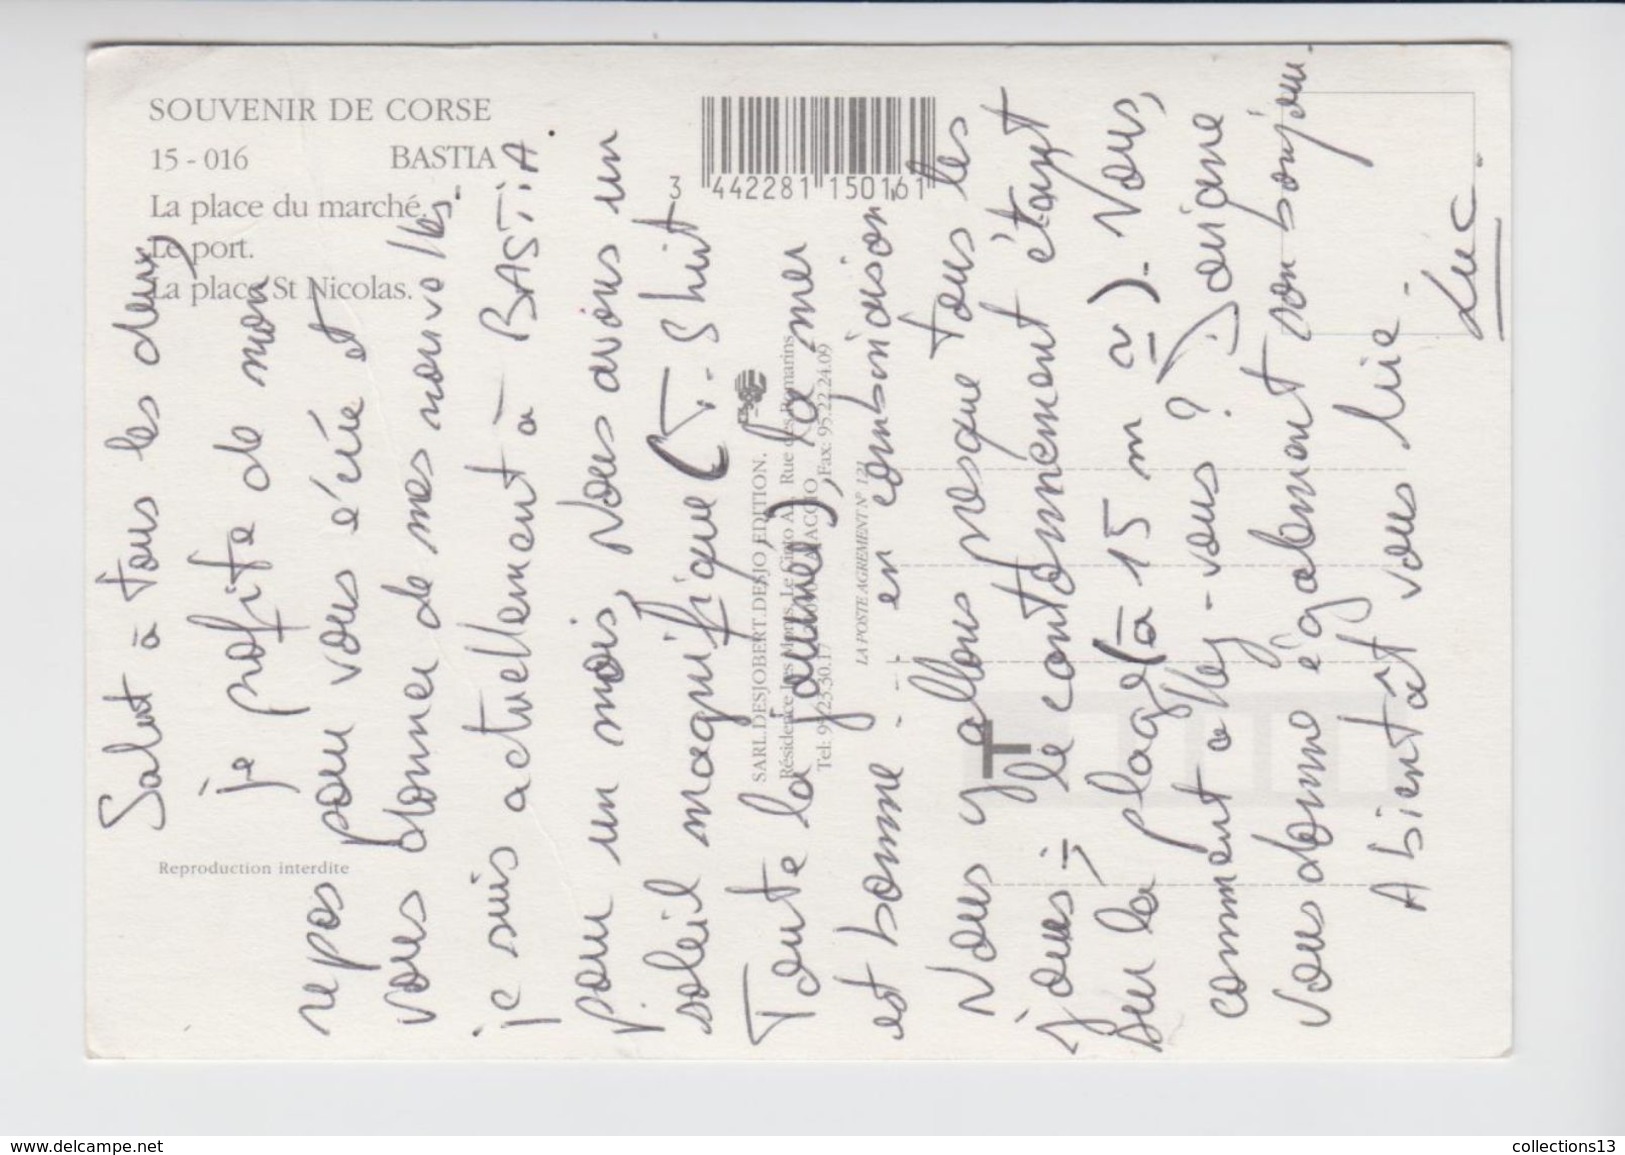 SOUVENIR DE CORSE
15 - 016 BASTIA
La place du marché.
Le port.
La place St Nicolas.
3 442281 150161
Reproduction interdite
SARL.DESJOBERT.DESJO EDITION.
Résidence Les Monts, Le Cinto A2, Rue des Romarins
Tel: 95.23.30.17 - 20090 AJACCIO, Fax: 95.22.24.09
LA POSTE AGREMENT N° 121
T
Salut à tous les deux,
je profite de mon
repos pour vous écrire et
vous donner de mes nouvelles.
je suis actuellement à BASTIA
pour un mois, nous avons un
soleil magnifique (T. Shirt
Toute la journée), la mer
est bonne - - en combinaison,
Nous y allons presque tous les
jours - le cantonnement étant
sur la plage (à 15 m ~). Vous,
comment allez-vous ?
vous donne également son bonjour.
A bientôt vous lire -
Luc.
www.delcampe.net
collections13